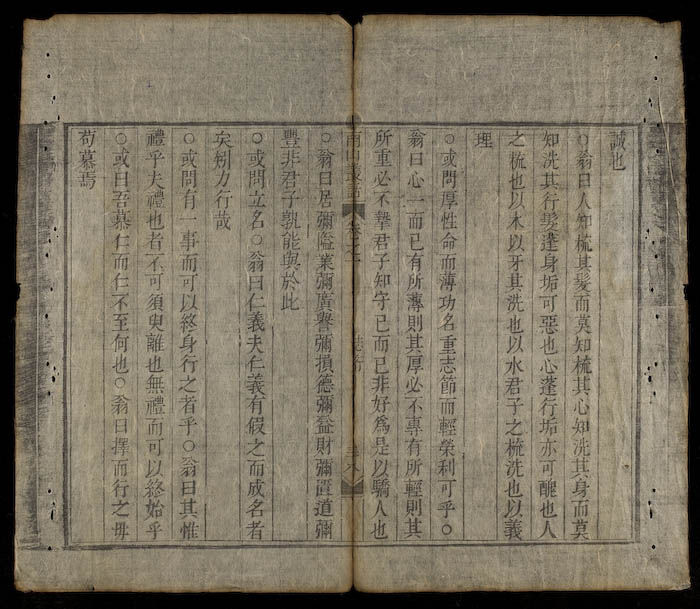 誠也
○翁曰人知梳其髮而莫知梳其心知洗其身而莫
知洗其行髮蓬身垢可惡也心蓬行垢亦可醜也人
之梳也以木以牙其洗也以水君子之梳洗也以義
理
○或問厚性命而薄功名重志節而輕榮利可乎○
翁曰心一而已有所薄則其厚必不專有所輕則其
所重必不摯君子知守已而已非好爲是以驕人也
南山叢話 卷之 三十八
○翁曰居彌隘業彌廣譽彌損德彌益財彌匱道彌
豐非君子孰能與於此
○或問立名○翁曰仁義夫仁義有假之而成名者
矣矧力行哉
○或問有一事而可以終身行之者乎○翁曰其惟
禮乎夫禮也者不可須臾離也無禮而可以終始乎
○或曰吾慕仁而仁不至何也○翁曰擇而行之毋
苟慕焉